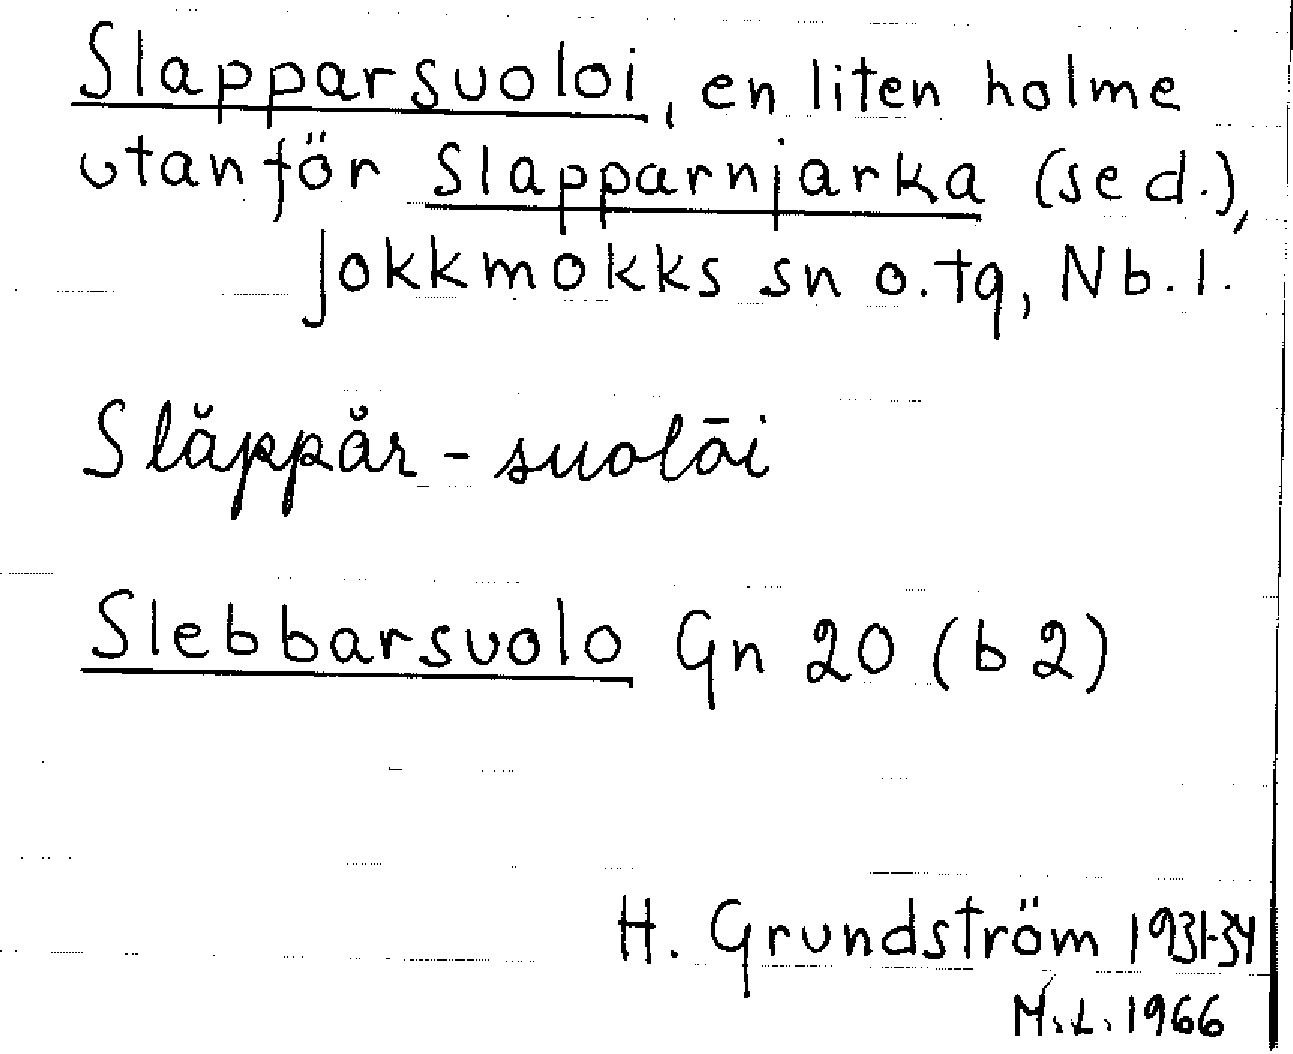 Slapparsuoloi, en liten holme
utanför Slapparnjarka (se d.),
Jokkmokks sn o. tg, Nb. l.
Slăppăr-suolāi
Slebbarsuolo Gn 20 (b 2)
H. Grundström 1931-34
M.L. 1966